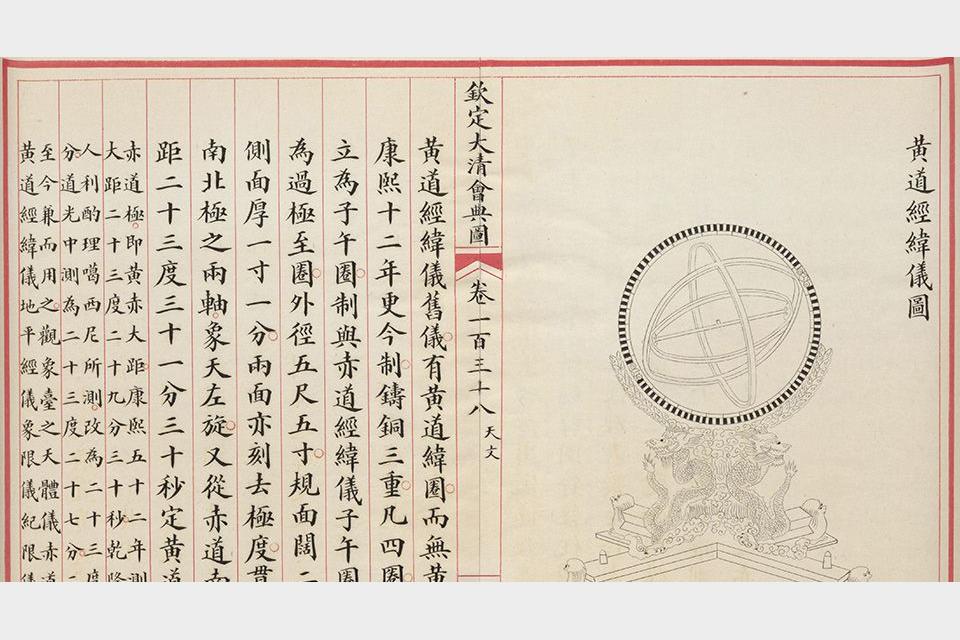 黃道經緯儀圖
欽定大清會典圖 卷一百三十八 天文
黃道經緯儀舊儀有黃道緯圈而無黃
康熙十二年更今制鑄銅三重凡四圈
立為子午圈制與赤道經緯儀子午圈
為過極至圈外徑五尺五寸規面闊二
側面厚一寸一分兩面亦刻去極度貫
南北極之兩軸象天左旋又從赤道南
距二十三度三十一分三十秒定黃道
赤道極即黃赤大距康熙五十二年測
大距二十三度二十九分三十秒乾隆
人利酌理噶西尼所測改為二十三度
分道光中測為二十三度二十七分二
至今兼而用之觀象臺之天體儀赤道
黃道經緯儀地平經儀象限儀紀限儀